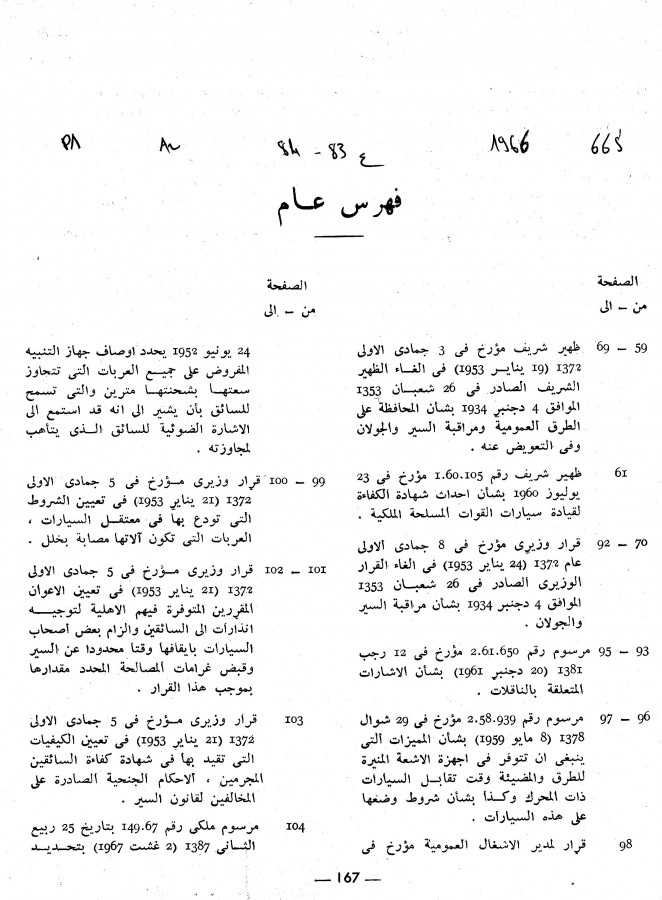 668 1966 ع 83 - 84 Ar P1
فهرس عـام
الصفحة
من – الى
59 – 69 ظهير شريف مؤرخ فى 3 جمادى الاولى
1372 (19 ينايـر 1953) فى الغـاء الظهير
الشريف الصادر فى 26 شعبـان 1353
الموافق 4 دجنبر 1934 بشأن المحافظة على
الطرق العمومية ومراقبة السير والجولان
وفى التعويض عنه .
61 ظهير شريف رقم 1.60.105 مؤرخ فى 23
يوليوز 1960 بشأن احداث شهادة الكفاءة
لقيادة سيارات القوات المسلحة الملكية .
70 – 92 قرار وزيرى مؤرخ فى 8 جمادى الاولى
عام 1372 (24 يناير 1953) فى الغاء القرار
الوزيرى الصادر فى 26 شعبـان 1353
الموافق 4 دجنبر 1934 بشأن مراقبة السير
والجولان .
93 – 95 مرسوم رقم 2.61.650 مؤرخ فى 12 رجب
1381 (20 دجنبر 1961) بشأن الاشارات
المتعلقة بالناقلات .
96 – 97 مرسوم رقم 2.58.939 مؤرخ فى 29 شوال
1378 (8 مايو 1959) بشأن المميزات التى
ينبغى ان تتوفر فى اجهزة الاشعة المنيرة
للطرق والمضيئة وقت تقابـل السيارات
ذات المحرك وكـذا بشأن شروط وضعها
على هذه السيارات .
98 قرار لمدير الاشغال العمومية مؤرخ فى
الصفحة
من – الى
24 يونيو 1952 يحدد اوصاف جهاز التنبيه
المفروض على جميع العربات التى تتجاوز
سعتهـا بشحنتهـا مترين والتى تسمح
للسائق بأن يشير الى انه قد استمع الى
الاشارة الضوئية للسائق الـذى يتأهب
لمجاوزته .
99 – 100 قرار وزيرى مـؤرخ فى 5 جمادى الاولى
1372 (21 يناير 1953) فى تعيين الشروط
التى تودع بهـا فى معتقـل السيارات ،
العربات التى تكون آلاتها مصابة بخلل .
101 – 102 قرار وزيرى مـؤرخ فى 5 جمادى الاولى
1372 (21 يناير 1953) فى تعيين الاعوان
المقررين المتوفرة فيهم الاهلية لتوجيـه
انذارات الى السائقين والزام بعض أصحاب
السيارات بايقافها وقتا محدودا عن السير
وقبض غرامات المصالحة المحدد مقدارها
بموجب هذا القرار .
103 قرار وزيرى مـؤرخ فى 5 جمادى الاولى
1372 (21 يناير 1953) فى تعيين الكيفيات
التى تقيد بها فى شهادة كفاءة السائقين
المجرمين ، الاحكام الجنحية الصادرة على
المخالفين لقانون السير .
104 مرسوم ملكى رقم 149.67 بتاريخ 25 ربيع
الثـانى 1387 (2 غشت 1967) بتحـديـد
— 167 —